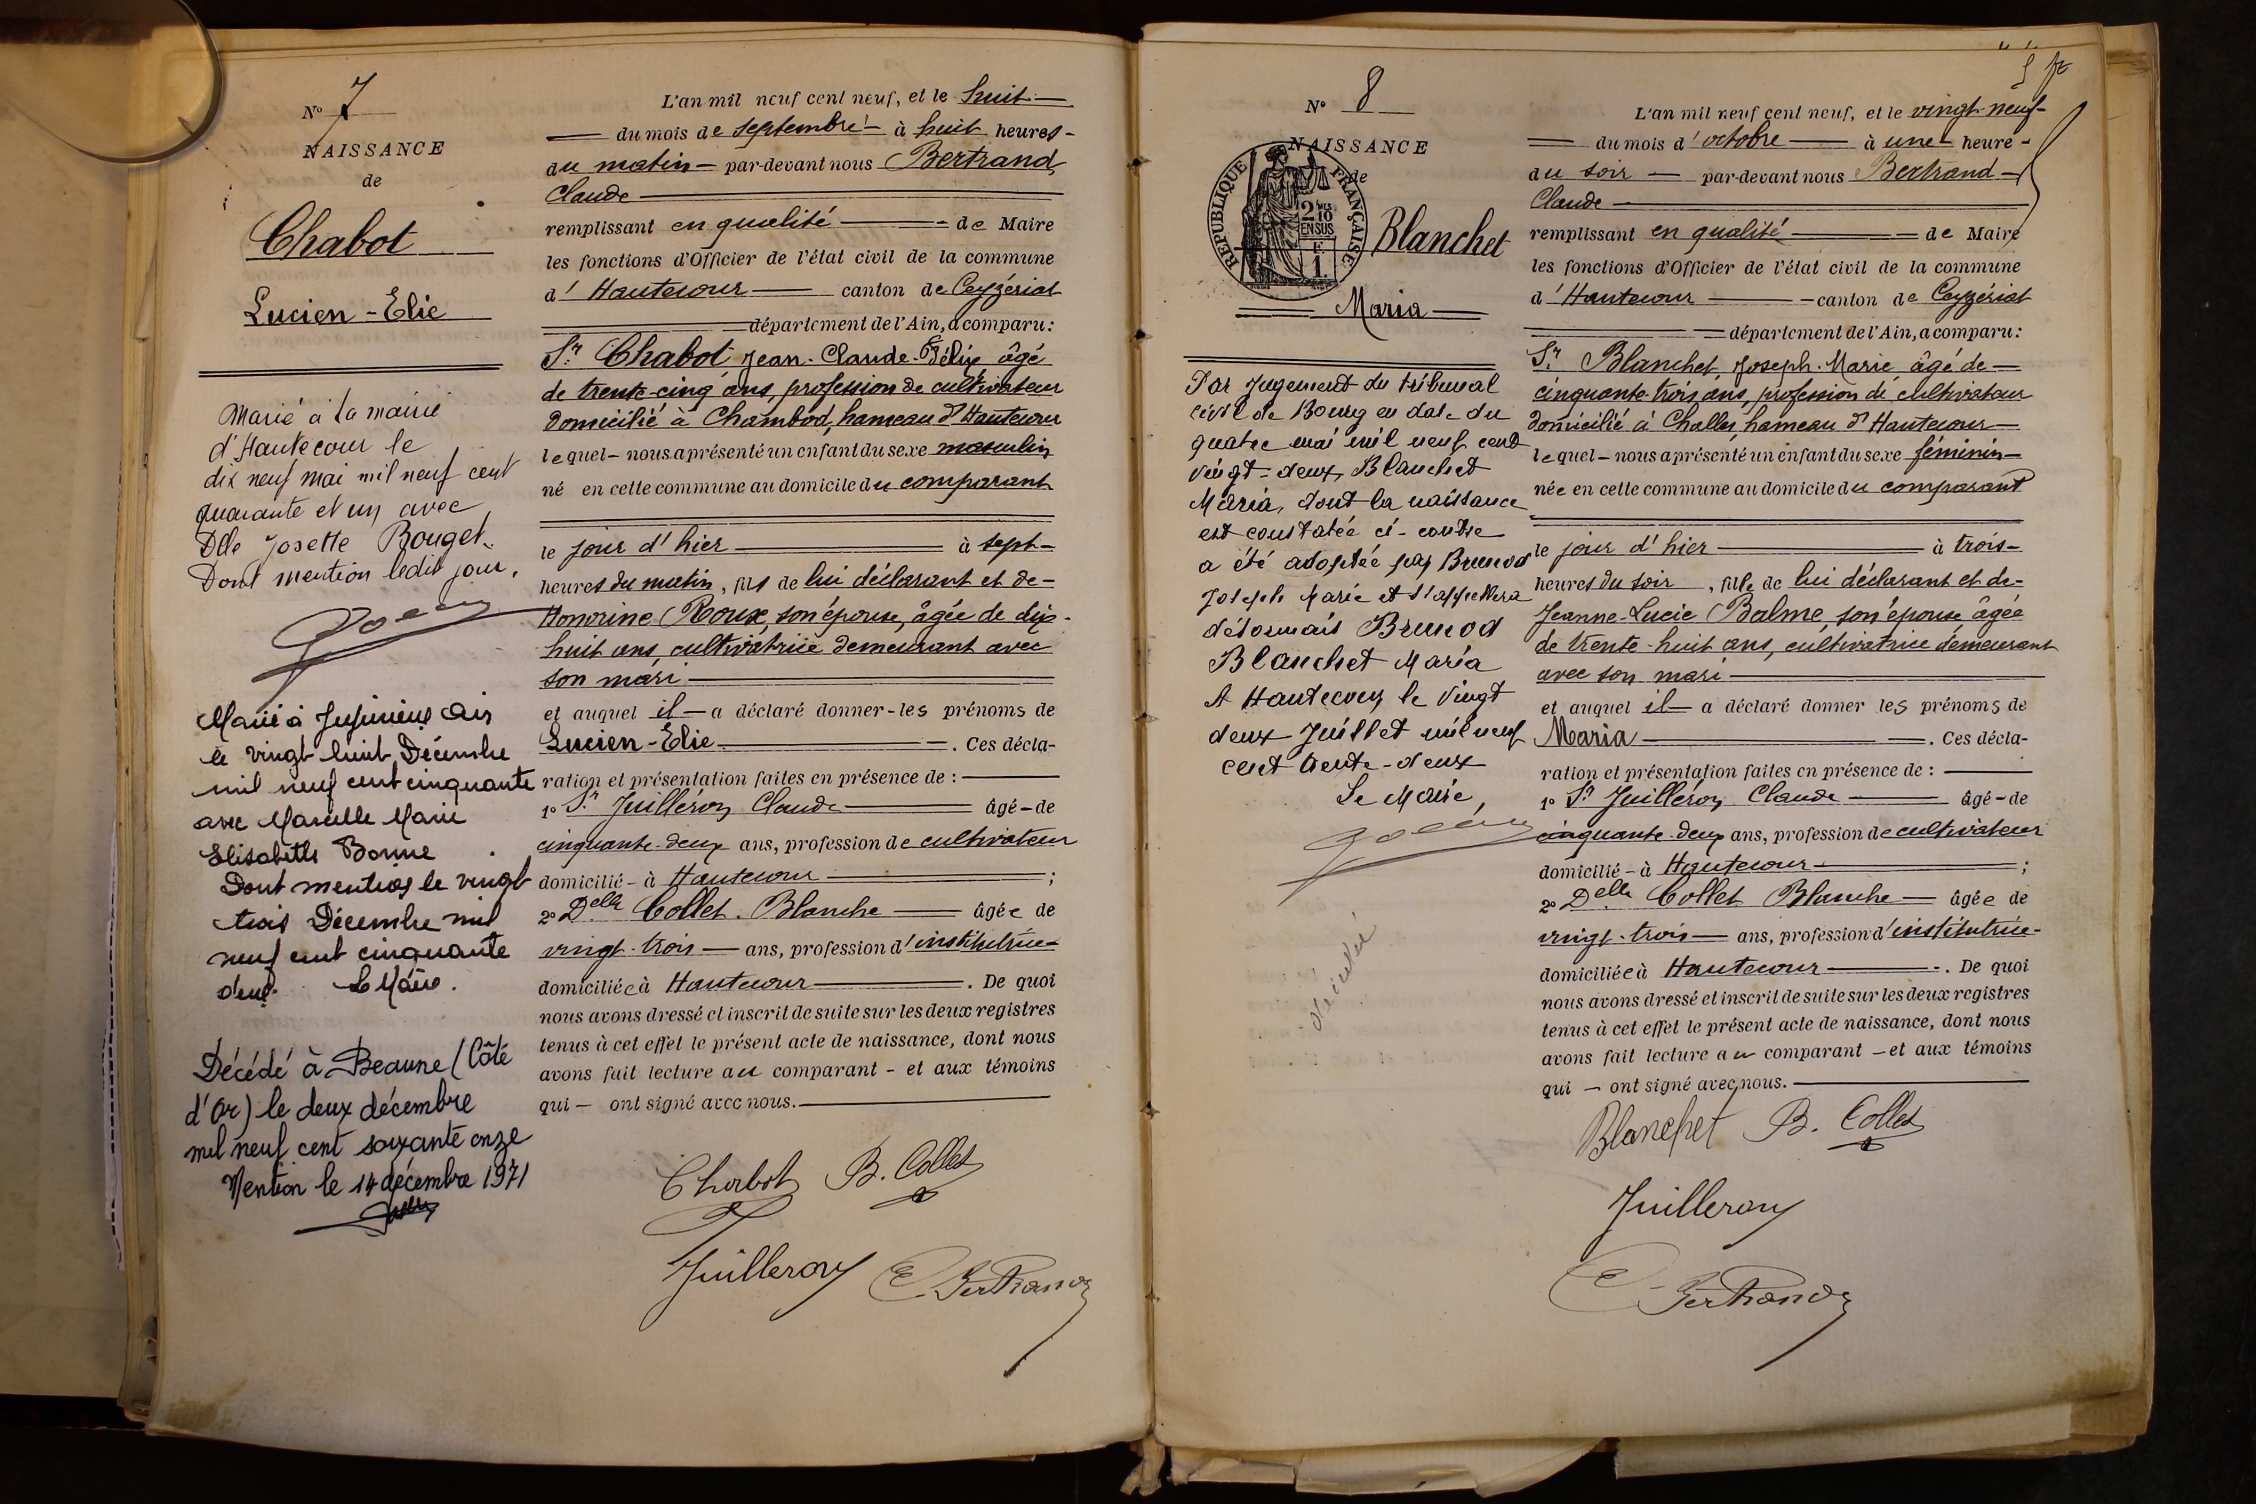 N° 7
NAISSANCE
de
Chabot
Lucien - Elie
Marié à la mairie
d'Hautecour le
dix neuf mai mil neuf cent
quarante et un avec
Dlle Josette Bouget.
Dont mention ledit jour.
Marié à Jujurieux Ain
le vingt huit Décembre
mil neuf cent cinquante
avec Marcelle Marie
Elisabeth Bonne
Dont mention le vingt
trois Décembre mil
neuf cent cinquante
deux. Le Maire.
Décédé à Beaune (Côte
d'Or) le deux décembre
mil neuf cent soixante onze
Mention le 14 décembre 1971
L'an mil neuf cent neuf, et le huit
du mois de septembre à huit heures
du matin par-devant nous Bertrand
Claude
remplissant en qualité de Maire
les fonctions d'Officier de l'état civil de la commune
d' Hautecour canton de Ceyzériat
département de l'Ain, a comparu:
Sr Chabot Jean-Claude-Félix âgé
de trente-cinq ans, profession de cultivateur
domicilié à Chambod, hameau d'Hautecour
lequel nous a présenté un enfant du sexe masculin
né en cette commune au domicile du comparant
le jour d'hier à sept
heures du matin, fils de lui déclarant et de
Honorine Roux, son épouse, âgée de dix-
huit ans, cultivatrice demeurant avec
son mari
et auquel il a déclaré donner les prénoms de
Lucien-Elie. Ces décla-
ration et présentation faites en présence de :
1° Sr Juilleron Claude âgé de
cinquante-deux ans, profession de cultivateur
domicilié à Hautecour ;
2° Delle Collet Blanche âgée de
vingt-trois ans, profession d'institutrice
domiciliée à Hautecour. De quoi
nous avons dressé et inscrit de suite sur les deux registres
tenus à cet effet le présent acte de naissance, dont nous
avons fait lecture au comparant et aux témoins
qui ont signé avec nous.
Chabot B. Collet
Juilleron C. Bertrand
N° 8
NAISSANCE
de
REPUBLIQUE FRANÇAISE
2/10
EN SUS
1
Blanchet
Maria
Par jugement du tribunal
civil de Bourg en date du
quatre mai mil neuf cent
vingt-deux, Blanchet
Maria, dont la naissance
est constatée ci-contre
a été adoptée par Brunod
Joseph Marie et s'appellera
désormais Brunod
Blanchet Maria
A Hautecour, le vingt
deux Juillet mil neuf
cent trente-deux
Le Maire,
L'an mil neuf cent neuf, et le vingt-neuf
du mois d'octobre à une heure
du soir par-devant nous Bertrand
Claude
remplissant en qualité de Maire
les fonctions d'Officier de l'état civil de la commune
d'Hautecour canton de Ceyzériat
département de l'Ain, a comparu:
Sr Blanchet Joseph-Marie âgé de
cinquante-trois ans, profession de cultivateur
domicilié à Challes, hameau d'Hautecour
lequel nous a présenté un enfant du sexe féminin
née en cette commune au domicile du comparant
le jour d'hier à trois
heures du soir, fille de lui déclarant et de
Jeanne-Lucie Balme, son épouse âgée
de trente-huit ans, cultivatrice demeurant
avec son mari
et auquel il a déclaré donner les prénoms de
Maria. Ces décla-
ration et présentation faites en présence de :
1° Sr Juilleron Claude âgé de
cinquante-deux ans, profession de cultivateur
domicilié à Hautecour ;
2° Delle Collet Blanche âgée de
vingt-trois ans, profession d'institutrice
domiciliée à Hautecour. De quoi
nous avons dressé et inscrit de suite sur les deux registres
tenus à cet effet le présent acte de naissance, dont nous
avons fait lecture au comparant et aux témoins
qui ont signé avec nous.
Blanchet B. Collet
Juilleron
C. Bertrand